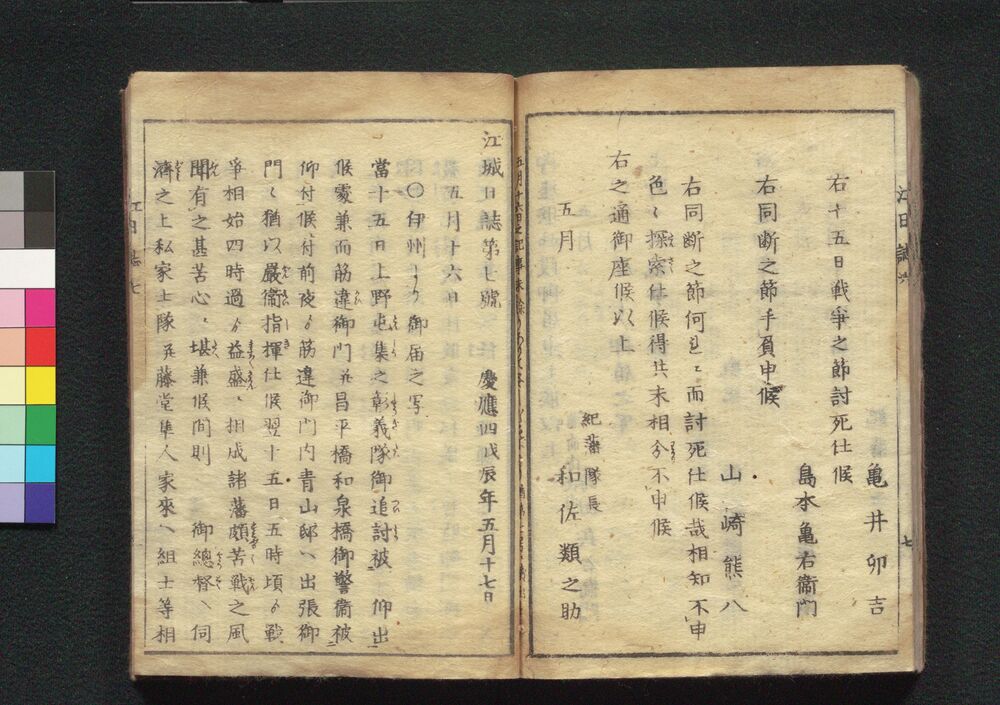 亀井卯吉
右十五日戦爭之節討死仕候
島本亀右衛門
右同断之節手負申候
山崎熊八
右同断之節何レニ而討死仕候哉相知不申
色々探索仕候得共未相分不申候
右之通御座候以上
紀藩隊長
五月 和佐類之助
江日誌六
七
江城日誌第七號 慶應四戊辰年五月十七日
五月十六日
〇伊州ゟ御届之写
當十五日上野屯集之彰義隊御追討被 仰出
候處兼而筋違御門并昌平橋和泉橋御警衞被
仰付候付前夜ゟ筋違御門内青山邸ヘ出張御
門々猶以嚴衞指揮仕候翌十五日五時頃ゟ戦
爭相始四時過ゟ益盛ニ相成諸藩頗苦戦之風
聞有之甚苦心ニ堪兼候間則 御總督ヘ伺
濟之上私家士隊并藤堂隼人家来ヘ組士等相
江日誌七